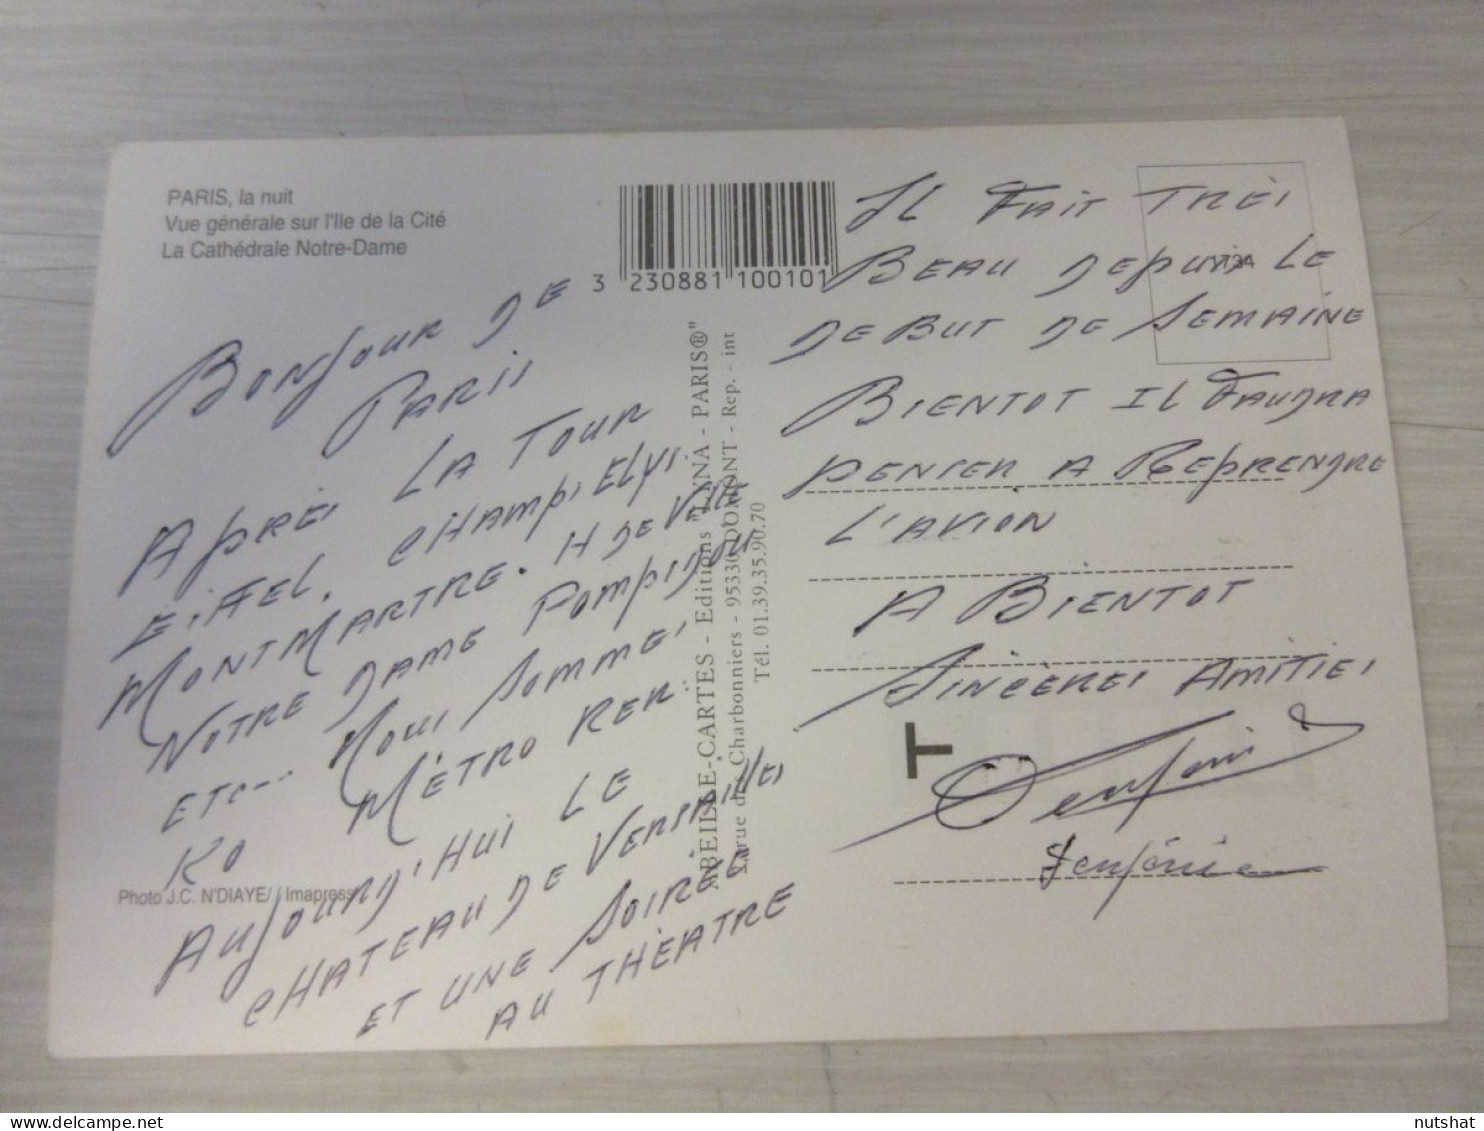 PARIS, la nuit
Vue générale sur l'Ile de la Cité
La Cathédrale Notre-Dame
3 230881 100101
BONJOUR DE
PARIS
APRÈS LA TOUR
EIFFEL. CHAMPS ELYS.
MONTMARTRE. H DE VILLE
NOTRE DAME POMPIDOU
ETC... NOUS SOMMES
KO MÉTRO RER
AUJOURD'HUI LE
CHATEAU DE VERSAILLES
ET UNE SOIRÉE
AU THÉATRE
Photo J.C. N'DIAYE/ Imapress
ABEILLE-CARTES - Editions "LYNA - PARIS®"
rue des Charbonniers - 95330 DOMONT - Rep. - int
Tél. 01.39.35.90.70
IL FAIT TRÈS
BEAU DEPUIS LE
DEBUT DE SEMAINE
BIENTOT IL FAUDRA
PENSER A REPRENDRE
L'AVION
A BIENTOT
SINCÈRES AMITIES
T
nutshat
delcampe.net